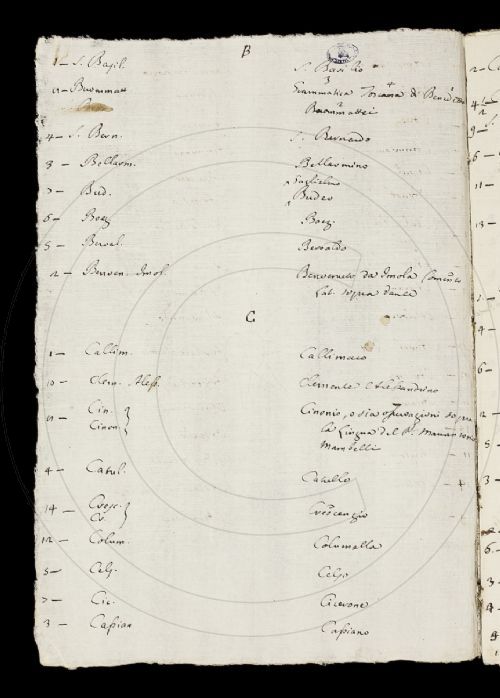 B
1 – S. Basil. S. Basilio
9 – Buonmatt Grammatica Toscana di Bened.
Buonmattei
4 – S. Bern. S. Bernardo
3 – Bellarm. Bellarmino
7 – Bud. Guglielmo
Budeo
6 – Boez Boez.
5 – Beroal. Beroaldo
2 – Benven. Imol. Benvenuto da Imola Comento
Lat. sopra dante
C
1 – Callim. Callimaco
10 – Clem. Aless. Clemente Alessandrino
11 – Cin. Cinonio, o sia osservazioni sopra
Cinon. la Lingua del P. Marcantonio
Mambelli
4 – Catul. Catullo
14 – Cresc. Crescenzio
Cr.
12 – Colum. Columella
8 – Cels. Celso
7 – Cic. Cicerone
3 – Cassian Cassiano